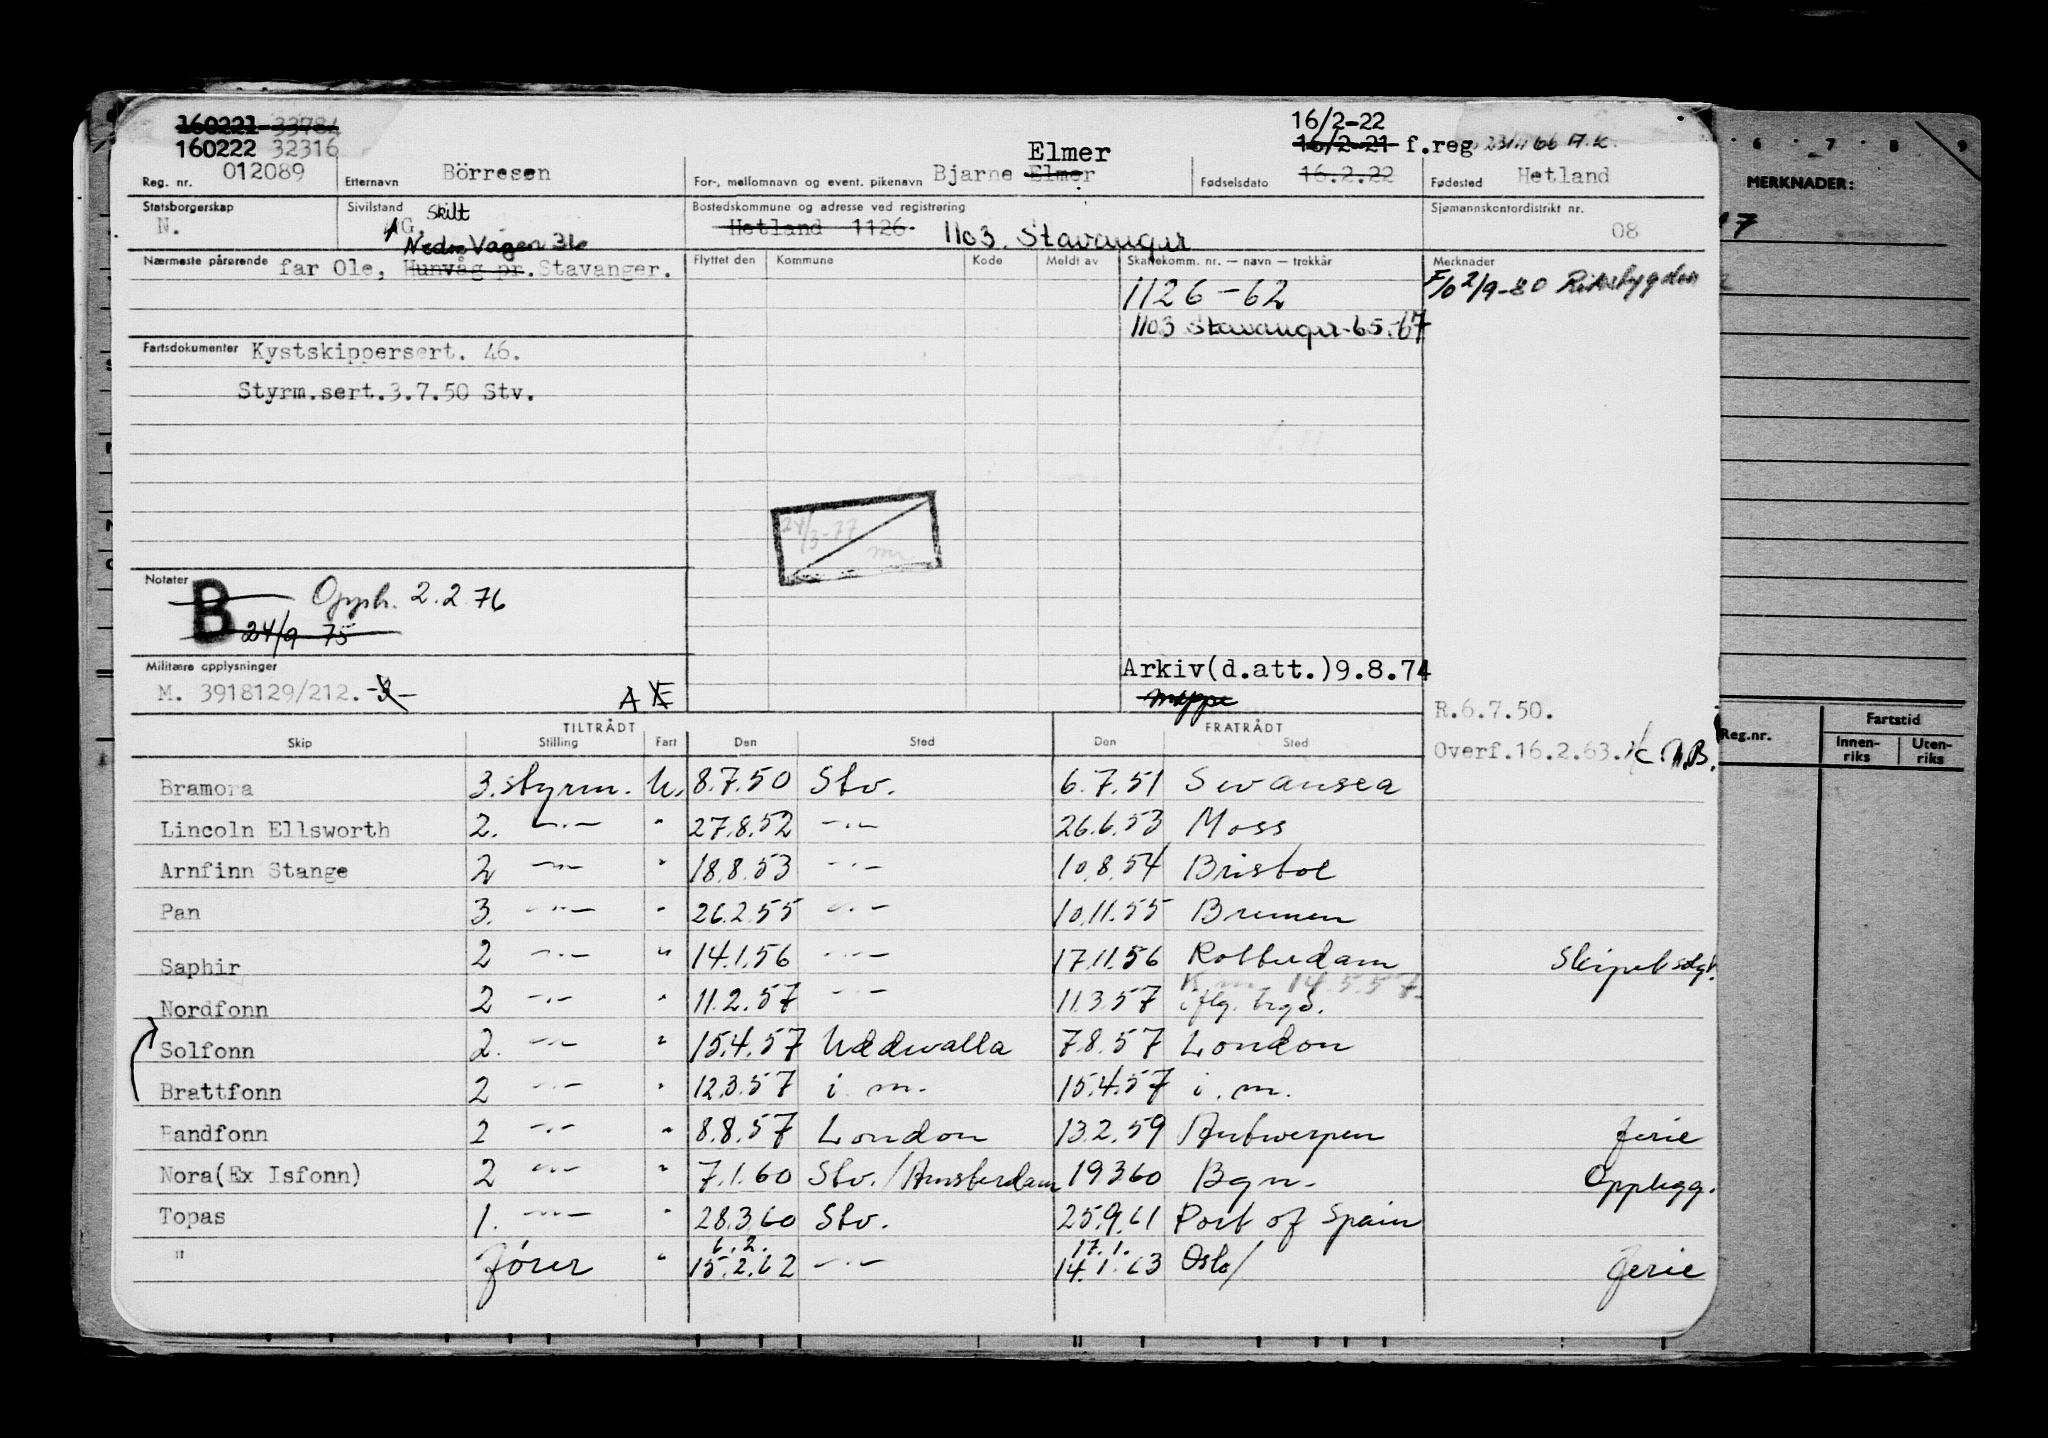 160221 33784
160222 32316
16/2-22
16/2-21 f.reg 23/11 66 A.K.
Elmer
Reg. nr. 012089 Etternavn Börresen For-, mellomnavn og event. pikenavn Bjarne Elmer Fødselsdato 16.2.22 Fødested Hetland
Statsborgerskap N. Sivilstand G. Skilt Bostedskommune og adresse ved registrering Hetland 1126 1103. Stavanger Sjømannskontordistrikt nr. 08
Nedre Vågen 36
Nærmeste pårørende far Ole, Hunvåg pr. Stavanger. Flyttet den Kommune Kode Meldt av Skattekomm. nr. — navn — trekkår Merknader
1126-62 F/o 2/9-80
1103 Stavanger 65-67
Fartsdokumenter Kystskippersert. 46.
Styrm.sert.3.7.50 Stv.
24/3-77
Notater B Opph. 2.2.76
24/9 75
Militære opplysninger Arkiv(d.att.)9.8.74
M. 3918129/212. -3- A E mappe
R.6.7.50.
Overf.16.2.63.
TILTRÅDT FRATRÅDT
Skip Stilling Fart Den Sted Den Sted
Bramora 3. styrm. U. 8.7.50 Stv. 6.7.51 Swansea
Lincoln Ellsworth 2. -"- " 27.8.52 -"- 26.6.53 Moss
Arnfinn Stange 2 -"- " 18.8.53 -"- 10.8.54 Bristol
Pan 3. -"- " 26.2.55 -"- 10.11.55 Bremen
Saphir 2 -"- " 14.1.56 -"- 17.11.56 Rotterdam Skipet solgt.
14.5.57.
Nordfonn 2 -"- " 11.2.57 -"- 11.3.57
Solfonn 2. -"- " 15.4.57 Uddevalla 7.8.57 London
Brattfonn 2 -"- " 12.3.57 i. m. 15.4.57 i. m.
Randfonn 2 -"- " 8.8.57 London 13.2.59 Antwerpen ferie
Nora(Ex Isfonn) 2 -"- " 7.1.60 Stv./Amsterdam 19.3.60 Bgn. Opplegg.
Topas 1. -"- " 28.3.60 Stv. 25.9.61 Port of Spain
6.2. 17.1.
" fører " 15.2.62 -"- 14.1.63 Oslo/ ferie
6 7 8 9
MERKNADER:
Reg.nr. Fartstid
Innen-riks Uten-riks